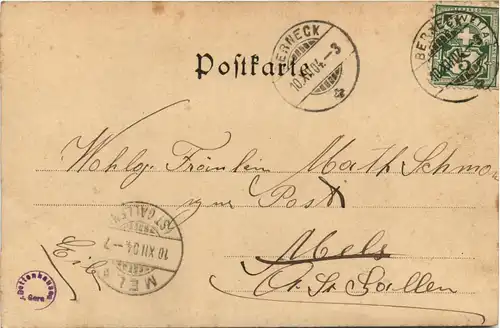 BERNECK
10.XII.04.-3
HELVETIA
BERNECK
5
Postkarte
Wohlg. Fräulein Math. Schmon
zur Post
Mels
Ct. St. Gallen
Eilb
(ST. GALLEN)
10 XII 04.-7
MELS
Gera